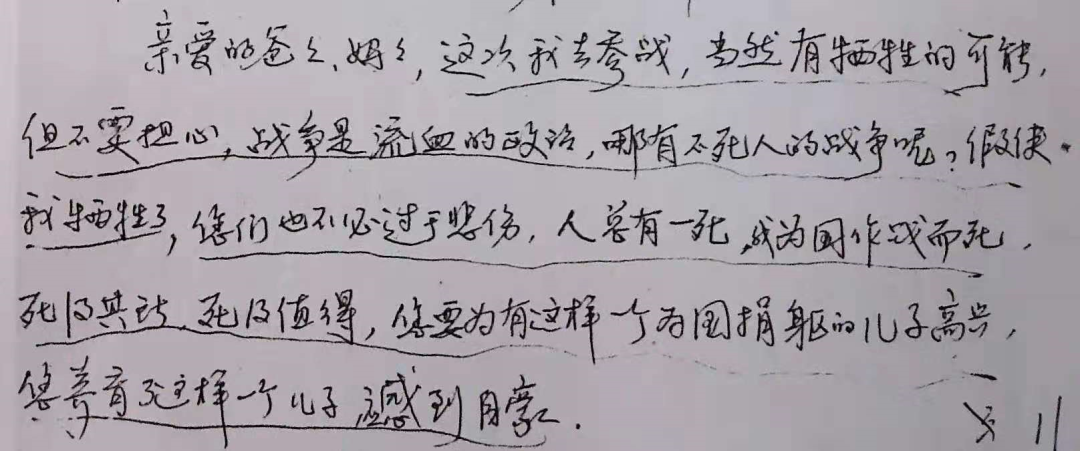 亲爱的爸々、妈々，这次我去参战，当然有牺牲的可能，
但不要担心，战争是流血的政治，哪有不死人的战争呢？假使
我牺牲了，您们也不必过于悲伤，人总有一死，我为国作战而死，
死得其所，死得值得，您要为有这样一个为国捐躯的儿子高兴，
您养育了这样一个儿子应感到自豪.